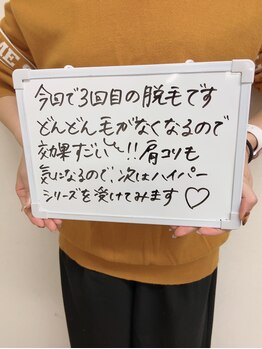 今回で3回目の脱毛です
どんどん毛がなくなるので
効果すごい〜!!肩コリも
気になるので、次はハイパー
シリーズを受けてみます♡